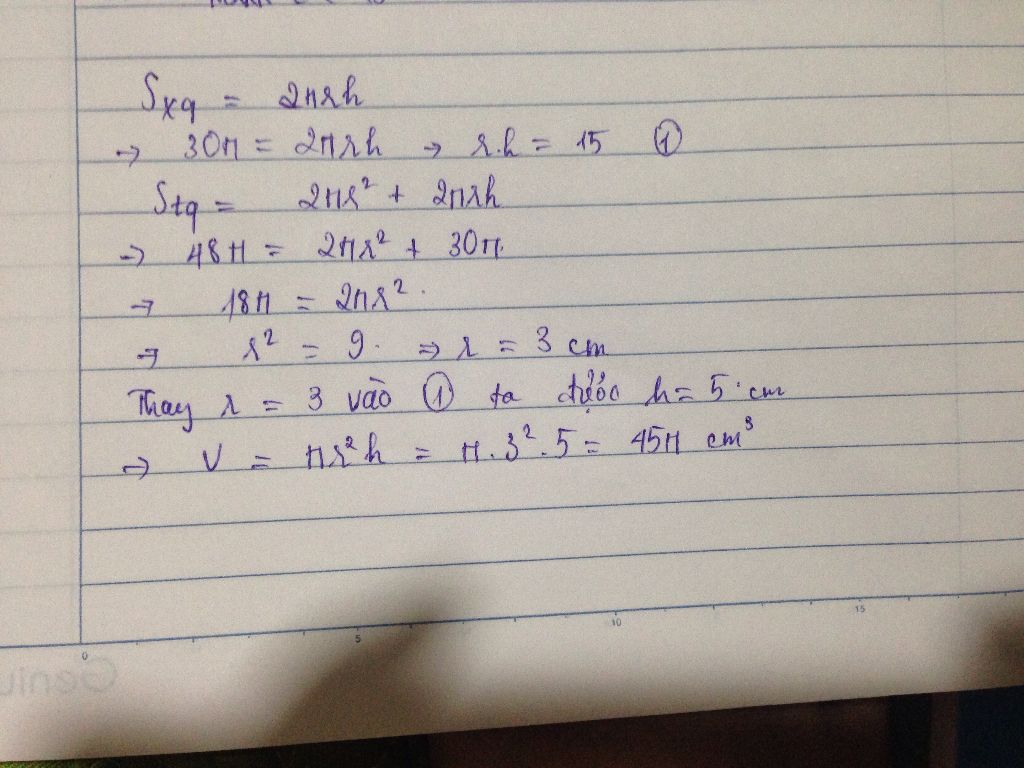 Sxq = 2πrh
→ 30π = 2πrh → r.h = 15 ①
Stq = 2πr² + 2πrh
→ 48π = 2πr² + 30π.
→ 18π = 2πr².
→ r² = 9. ⇒ r = 3 cm
Thay r = 3 vào ① ta được h = 5 cm
→ V = πr²h = π.3².5 = 45π cm³
0 5 10 15
Geniu